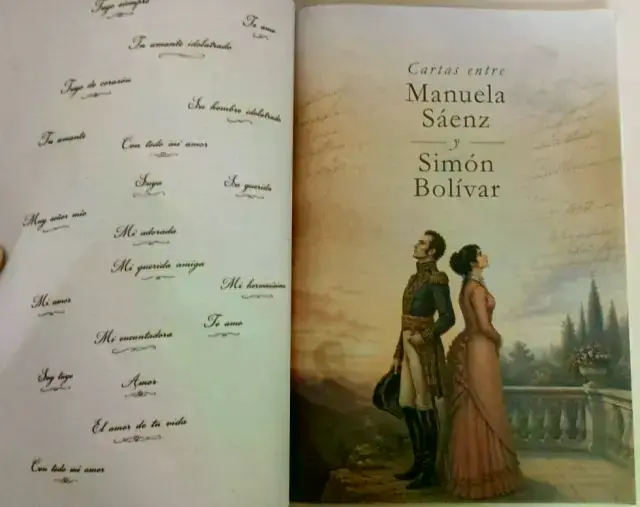 Tuyo siempre
Te amo
Tu amante idolatrado
Tuyo de corazón
Su hombre idolatrado
Tu amante
Con todo mi amor
Suyo
Su querida
Muy señor mío
Mi adorada
Mi querida amiga
Mi hermosísima
Mi amor
Te amo
Mi encantadora
Soy tuyo
Amor
El amor de tu vida
Con todo mi amor
Cartas entre
Manuela
Sáenz
y
Simón
Bolívar